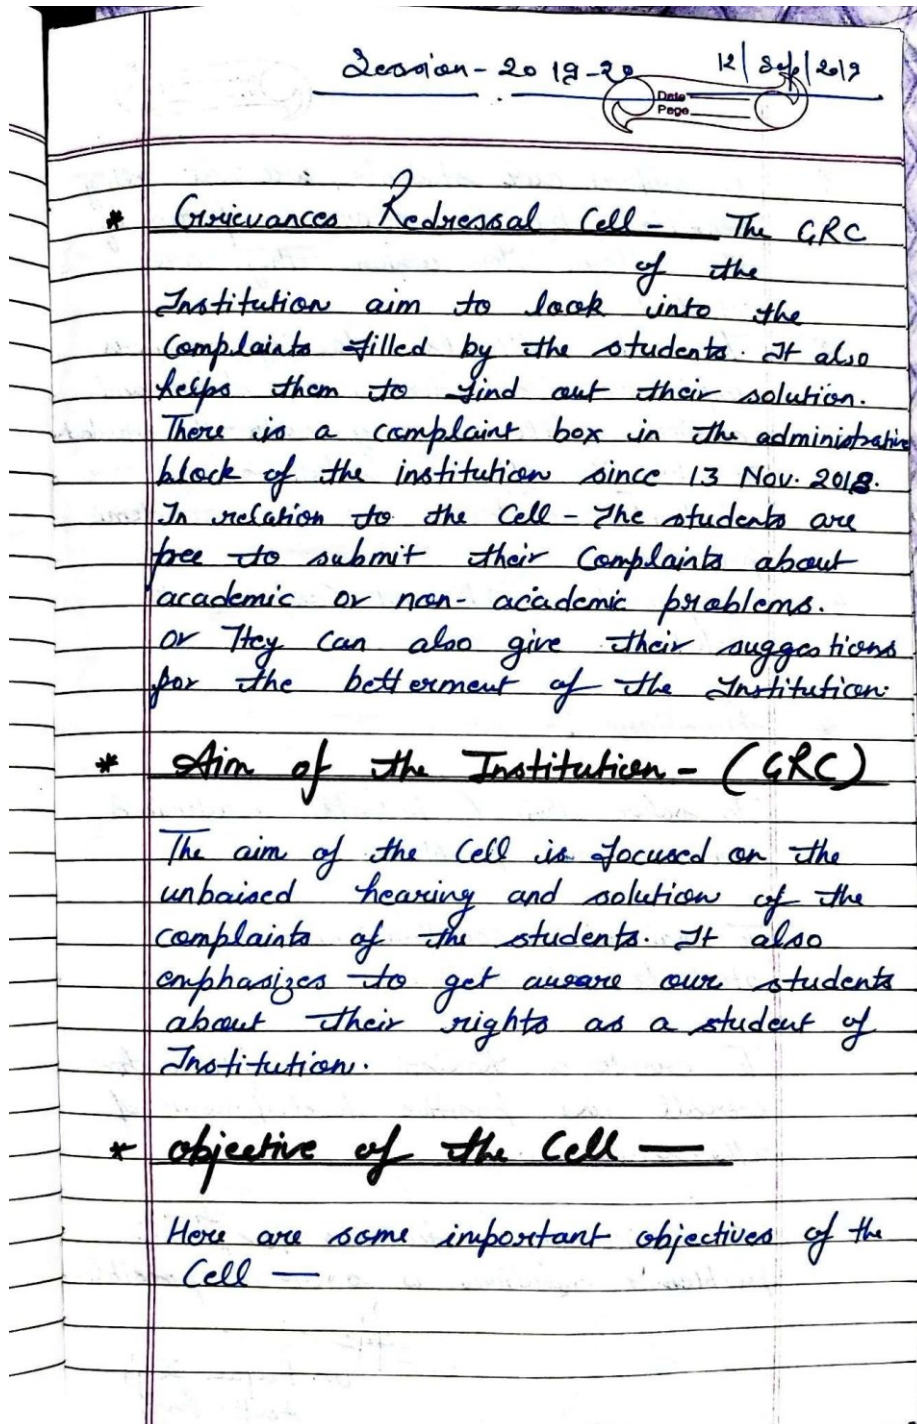 Session - 2019-20 12/Sep/2019
Date
Page
* Grievances Redressal Cell - The GRC
of the
Institution aim to look into the
Complaints filled by the students. It also
helps them to find out their solution.
There is a complaint box in the administrative
block of the institution since 13 Nov. 2018.
In relation to the Cell - The students are
free to submit their Complaints about
academic or non-academic problems.
or They can also give their suggestions
for the betterment of the Institution.
* Aim of the Institution - (GRC)
The aim of the Cell is focused on the
unbaised hearing and solution of the
complaints of the students. It also
emphasizes to get aware our students
about their rights as a student of
Institution.
* objective of the Cell —
Here are some important objectives of the
Cell —